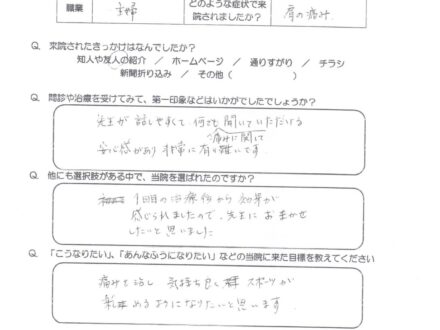 職業 主婦 どのような症状で来院されましたか? 肩の痛み
Q. 来院されたきっかけはなんでしたか?
知人や友人の紹介 / ホームページ / 通りすがり / チラシ
新聞折り込み / その他( )
Q. 問診や治療を受けてみて、第一印象などはいかがでしたでしょうか?
先生が話しやすくて何でも聞いていただける
痛みに関して
安心感があり非常に有り難いです。
Q. 他にも選択肢がある中で、当院を選ばれたのですか?
1回目の治療後から効果が
感じられましたので、先生におまかせ
したいと思いました
Q. 「こうなりたい」、「あんなふうになりたい」などの当院に来た目標を教えてください
痛みを治し 気持ち良く スポーツが
めるようになりたいと思います。